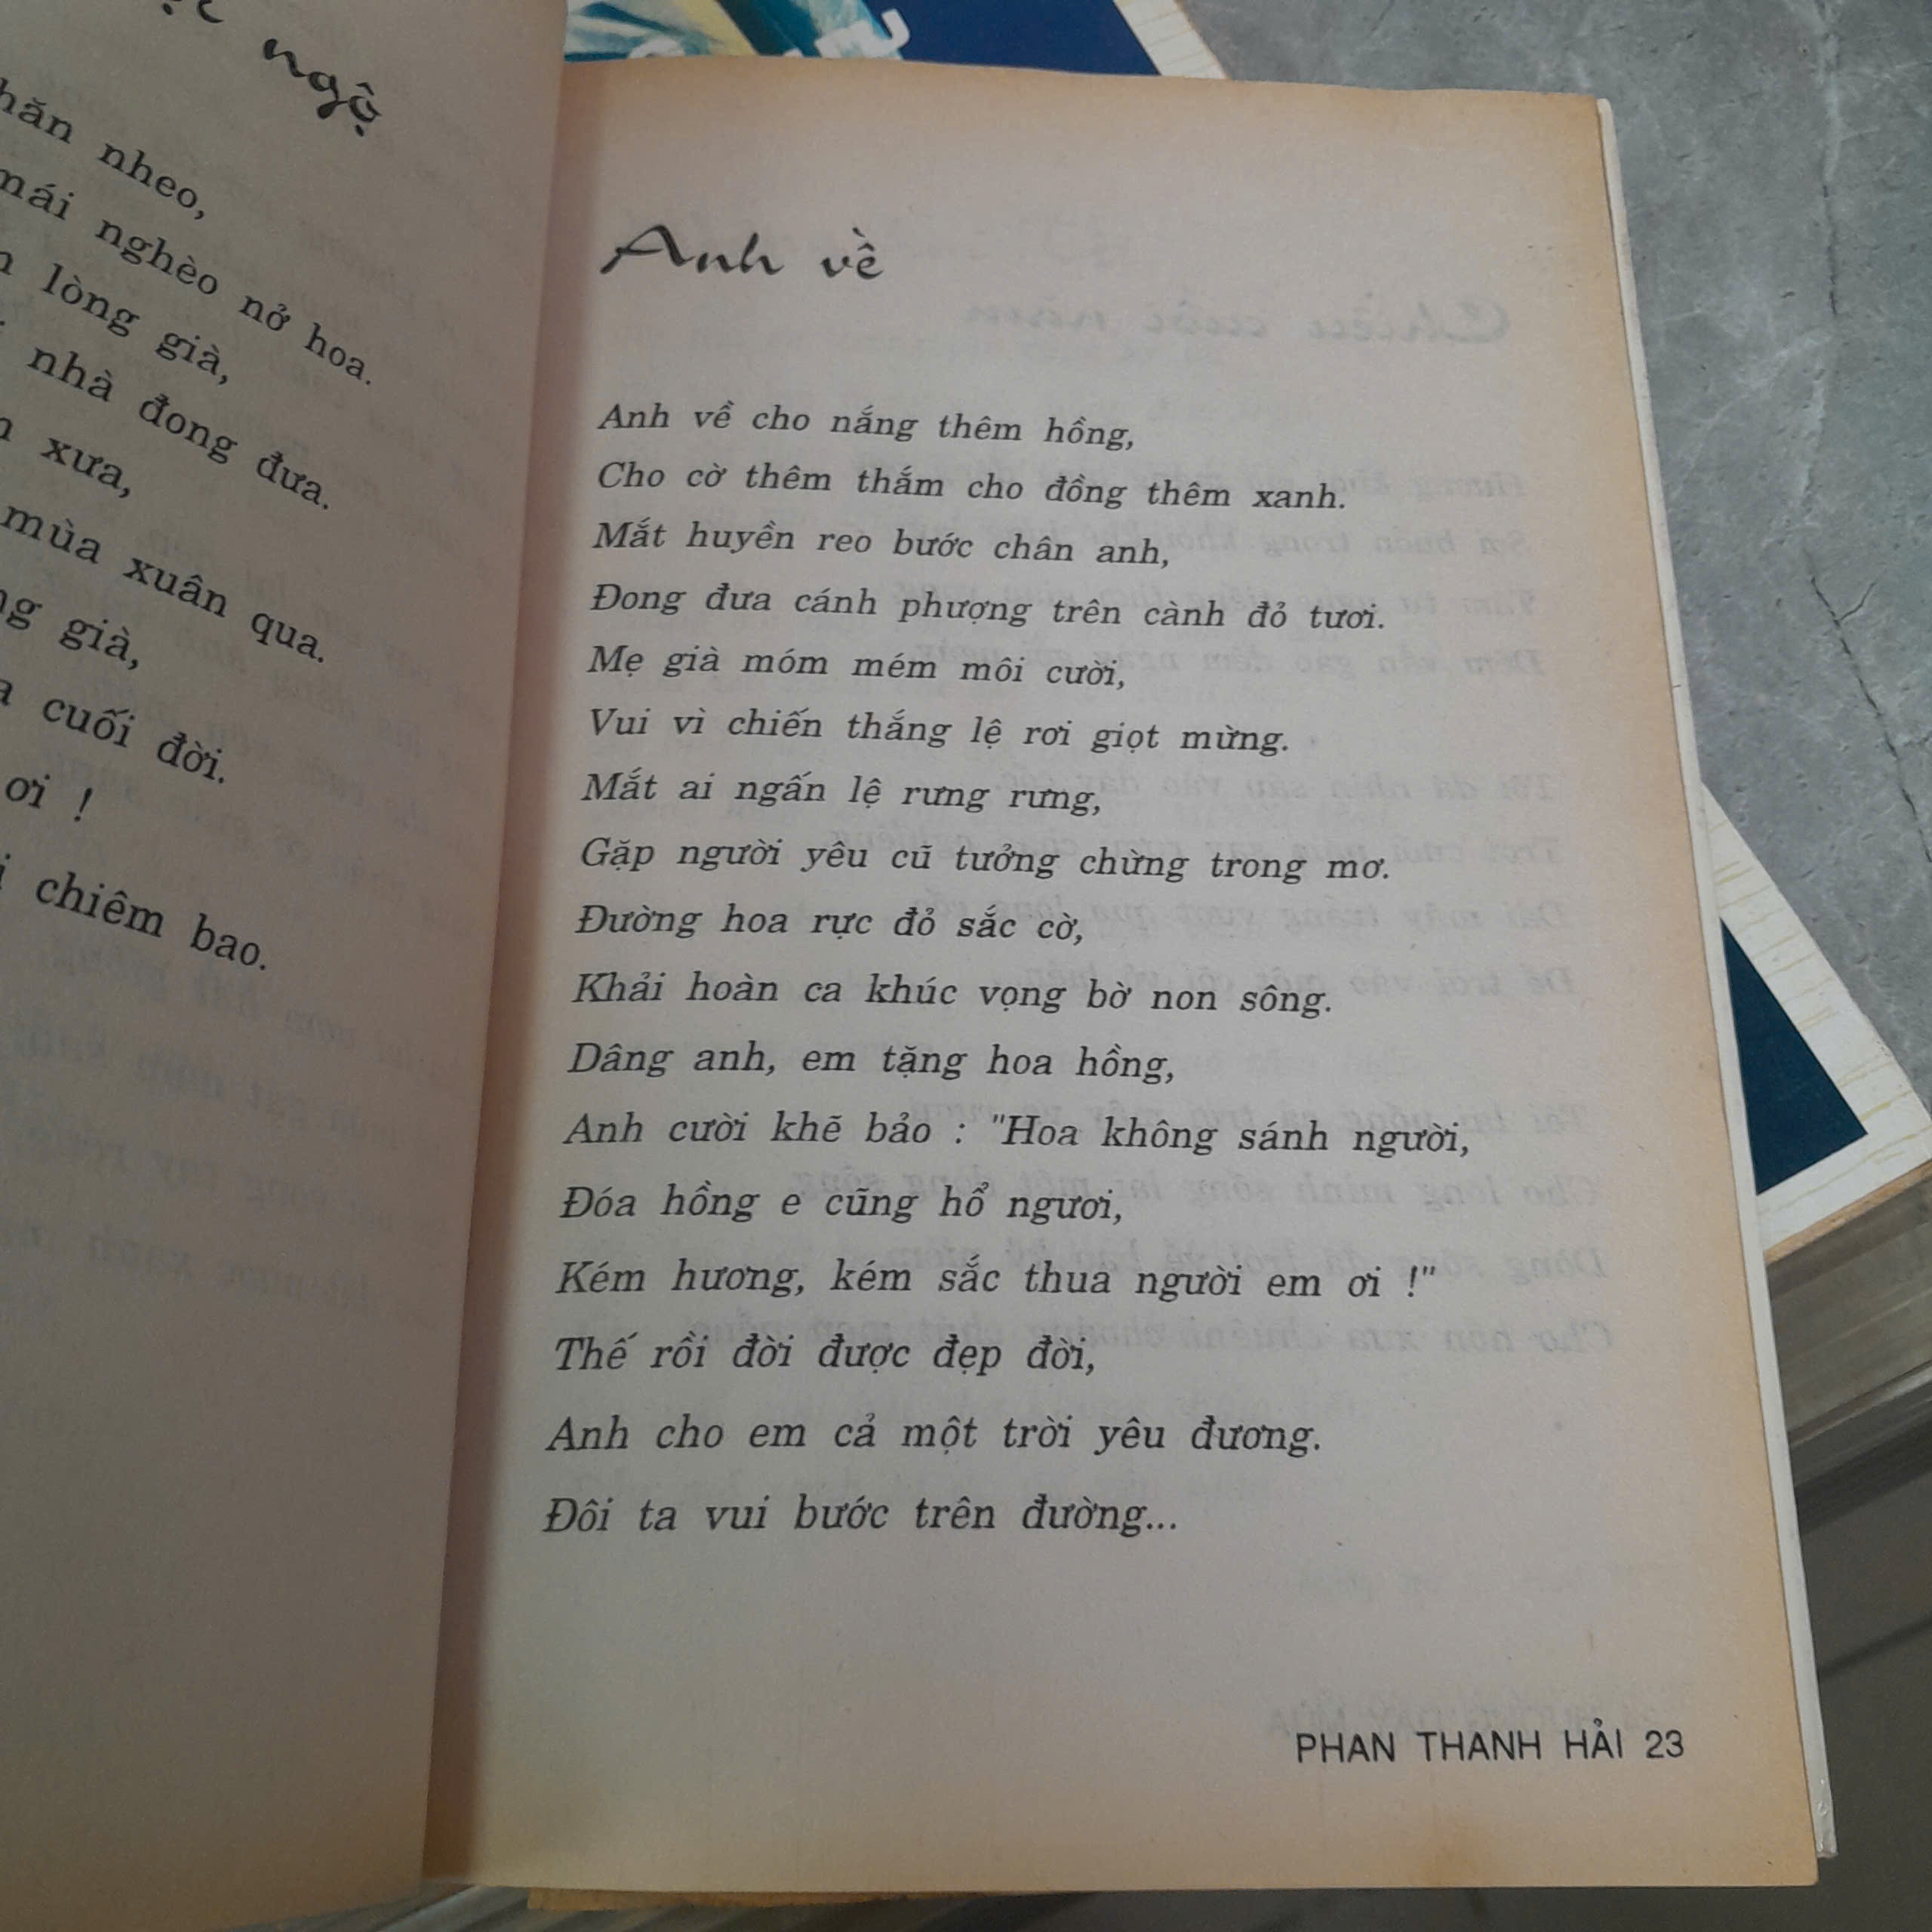 ngộ
nhăn nheo,
mái nghèo nở hoa.
lòng già,
nhà đong đưa.
xưa,
mùa xuân qua.
già,
cuối đời.
ơi !
chiêm bao.
Anh về
Anh về cho nắng thêm hồng,
Cho cờ thêm thắm cho đồng thêm xanh.
Mắt huyền reo bước chân anh,
Đong đưa cánh phượng trên cành đỏ tươi.
Mẹ già móm mém môi cười,
Vui vì chiến thắng lệ rơi giọt mừng.
Mắt ai ngấn lệ rưng rưng,
Gặp người yêu cũ tưởng chừng trong mơ.
Đường hoa rực đỏ sắc cờ,
Khải hoàn ca khúc vọng bờ non sông.
Dâng anh, em tặng hoa hồng,
Anh cười khẽ bảo : "Hoa không sánh người,
Đóa hồng e cũng hổ ngươi,
Kém hương, kém sắc thua người em ơi !"
Thế rồi đời được đẹp đời,
Anh cho em cả một trời yêu đương.
Đôi ta vui bước trên đường...
PHAN THANH HẢI 23